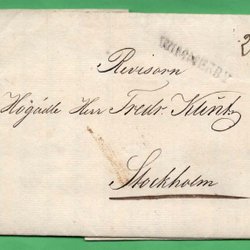 2
Revisorn
Högädle Herr Fredr. Küntz
Stockholm